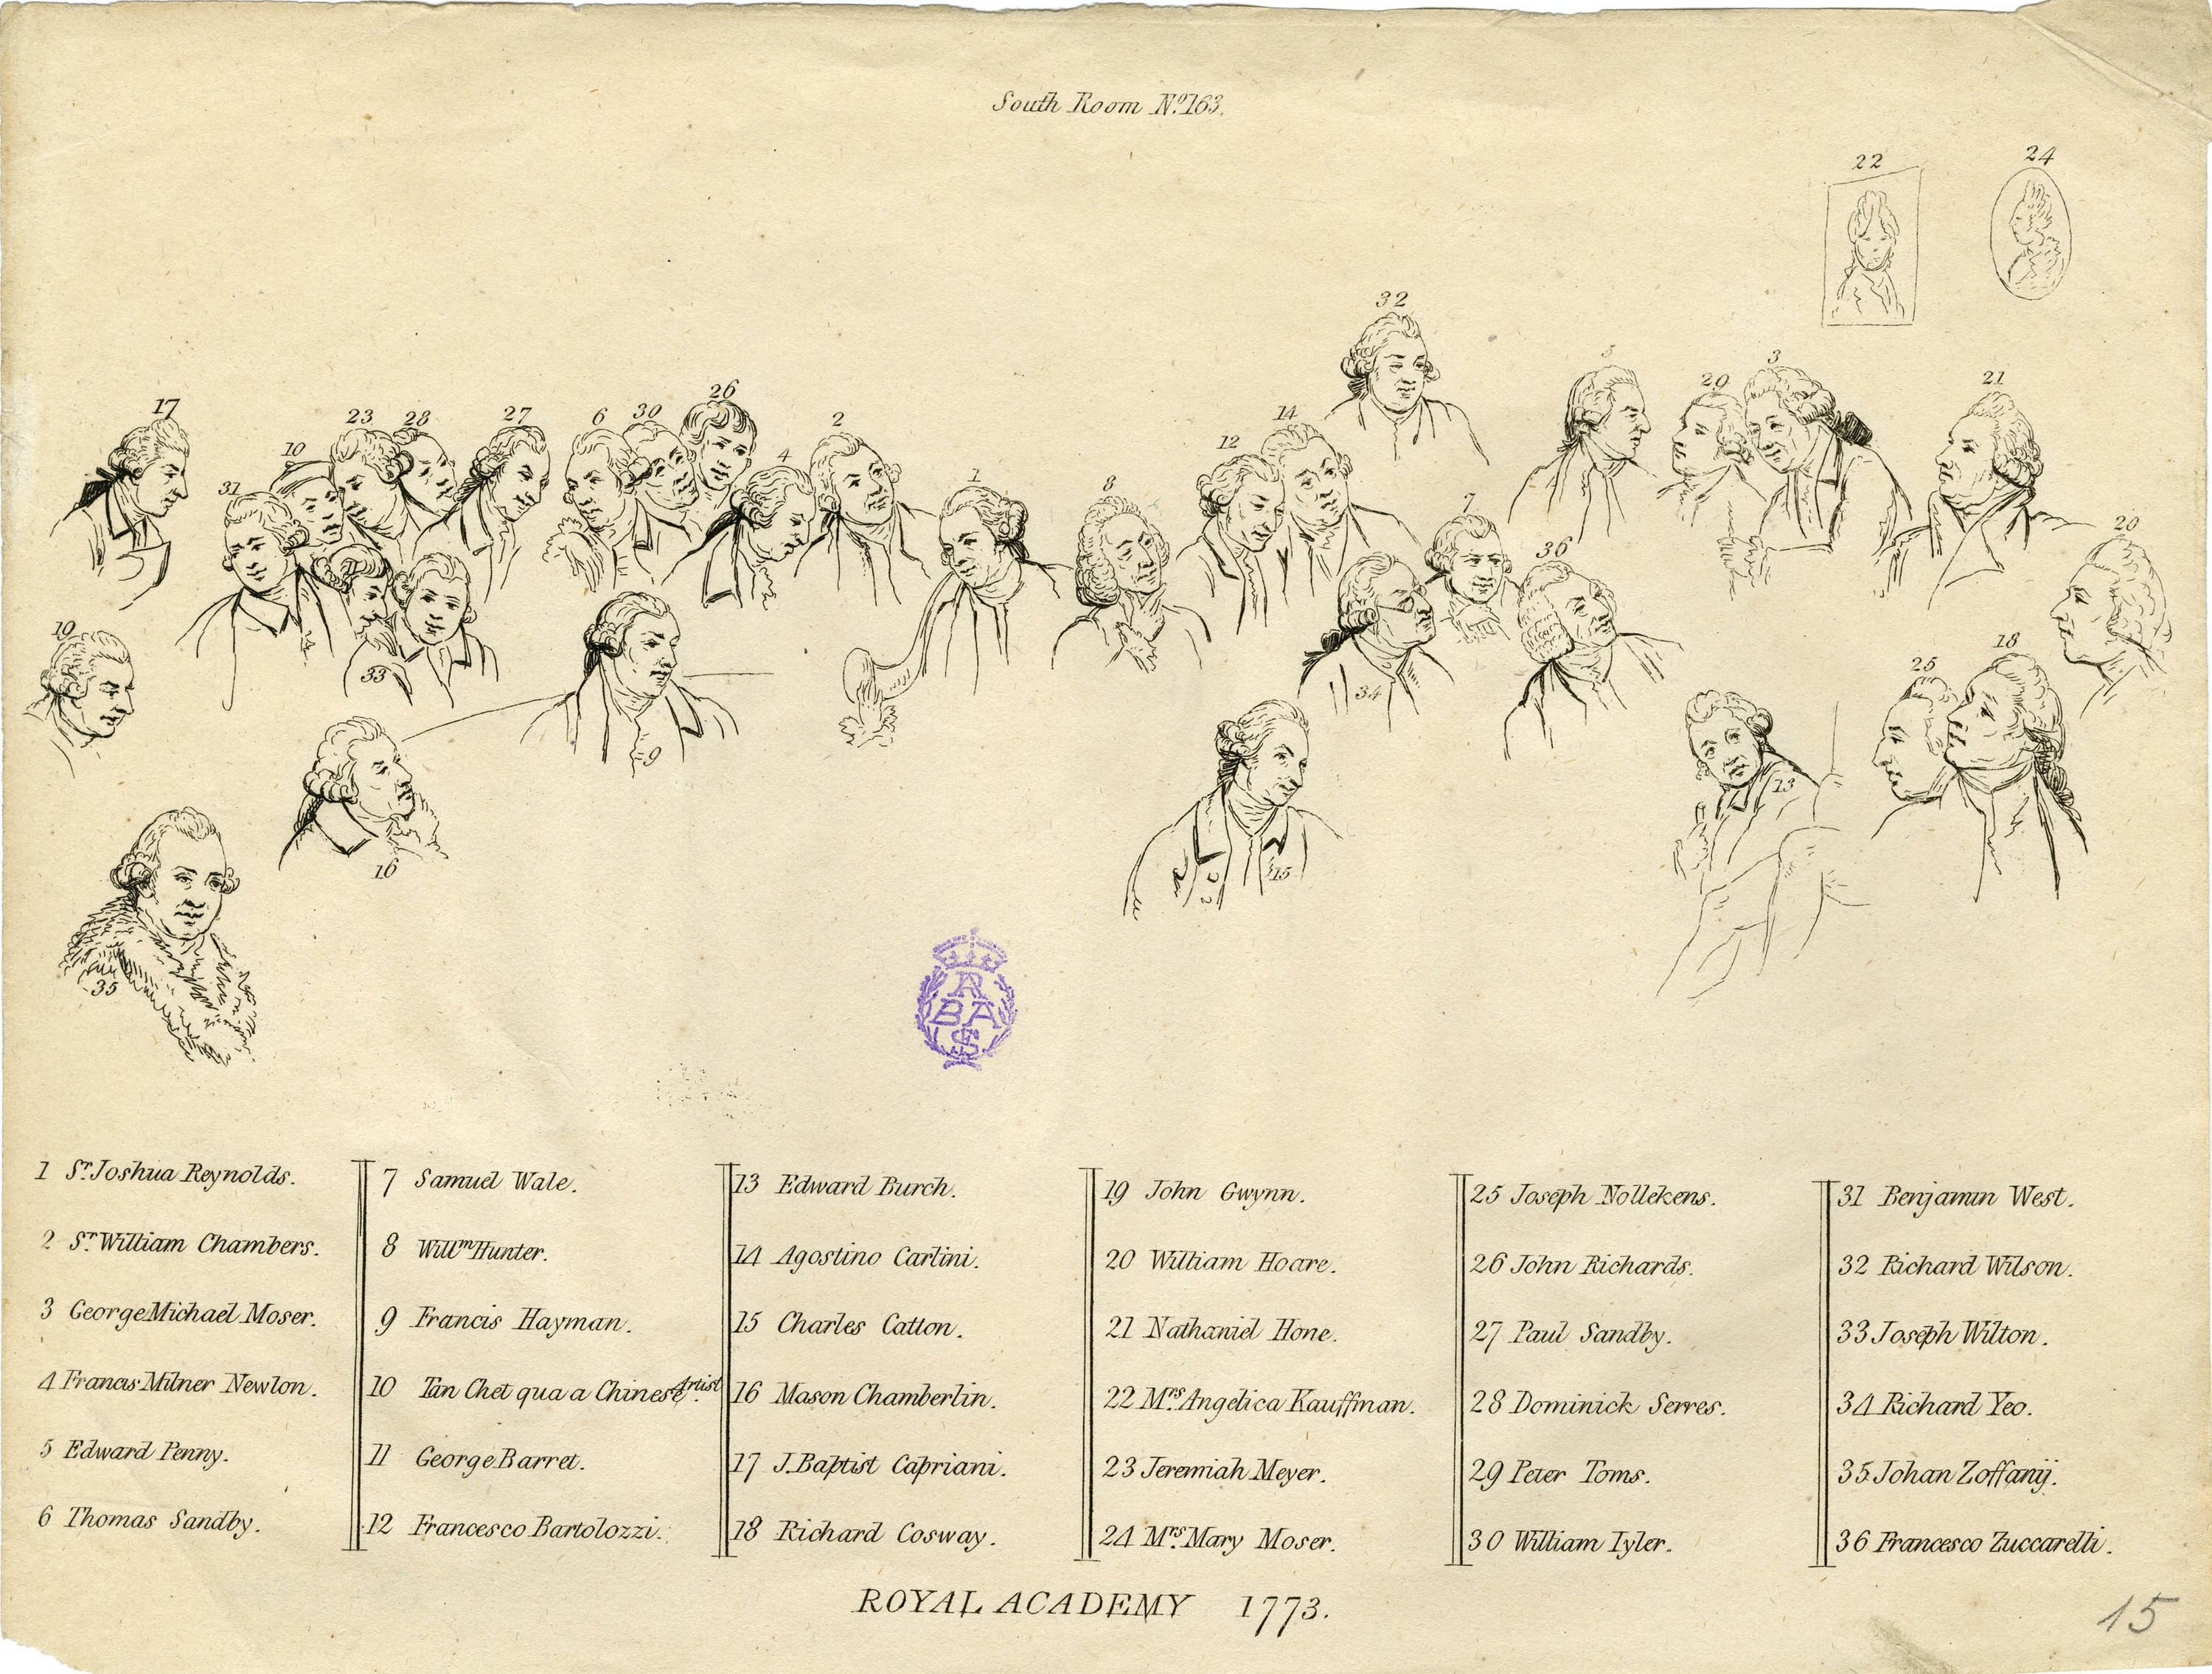 South Room Nº.163.
22
24
32
5
3
29
21
26
17
23
28
27
6
30
2
14
12
10
4
1
8
31
7
36
20
19
33
34
18
25
9
13
16
15
35
RA
BA
S
1 Sr. Joshua Reynolds.
2 Sr. William Chambers.
3 George Michael Moser.
4 Francis Milner Newton.
5 Edward Penny.
6 Thomas Sandby.
7 Samuel Wale.
8 Willm Hunter.
9 Francis Hayman.
10 Tan Chet qua a Chinese Artist.
11 George Barret.
12 Francesco Bartolozzi.
13 Edward Burch.
14 Agostino Carlini.
15 Charles Catton.
16 Mason Chamberlin.
17 J. Baptist Capriani.
18 Richard Cosway.
19 John Gwynn.
20 William Hoare.
21 Nathaniel Hone.
22 Mrs. Angelica Kauffman.
23 Jeremiah Meyer.
24 Mrs. Mary Moser.
25 Joseph Nollekens.
26 John Richards.
27 Paul Sandby.
28 Dominick Serres.
29 Peter Toms.
30 William Tyler.
31 Benjamin West.
32 Richard Wilson.
33 Joseph Wilton.
34 Richard Yeo.
35 Johan Zoffanij.
36 Francesco Zuccarelli.
ROYAL ACADEMY 1773.
15